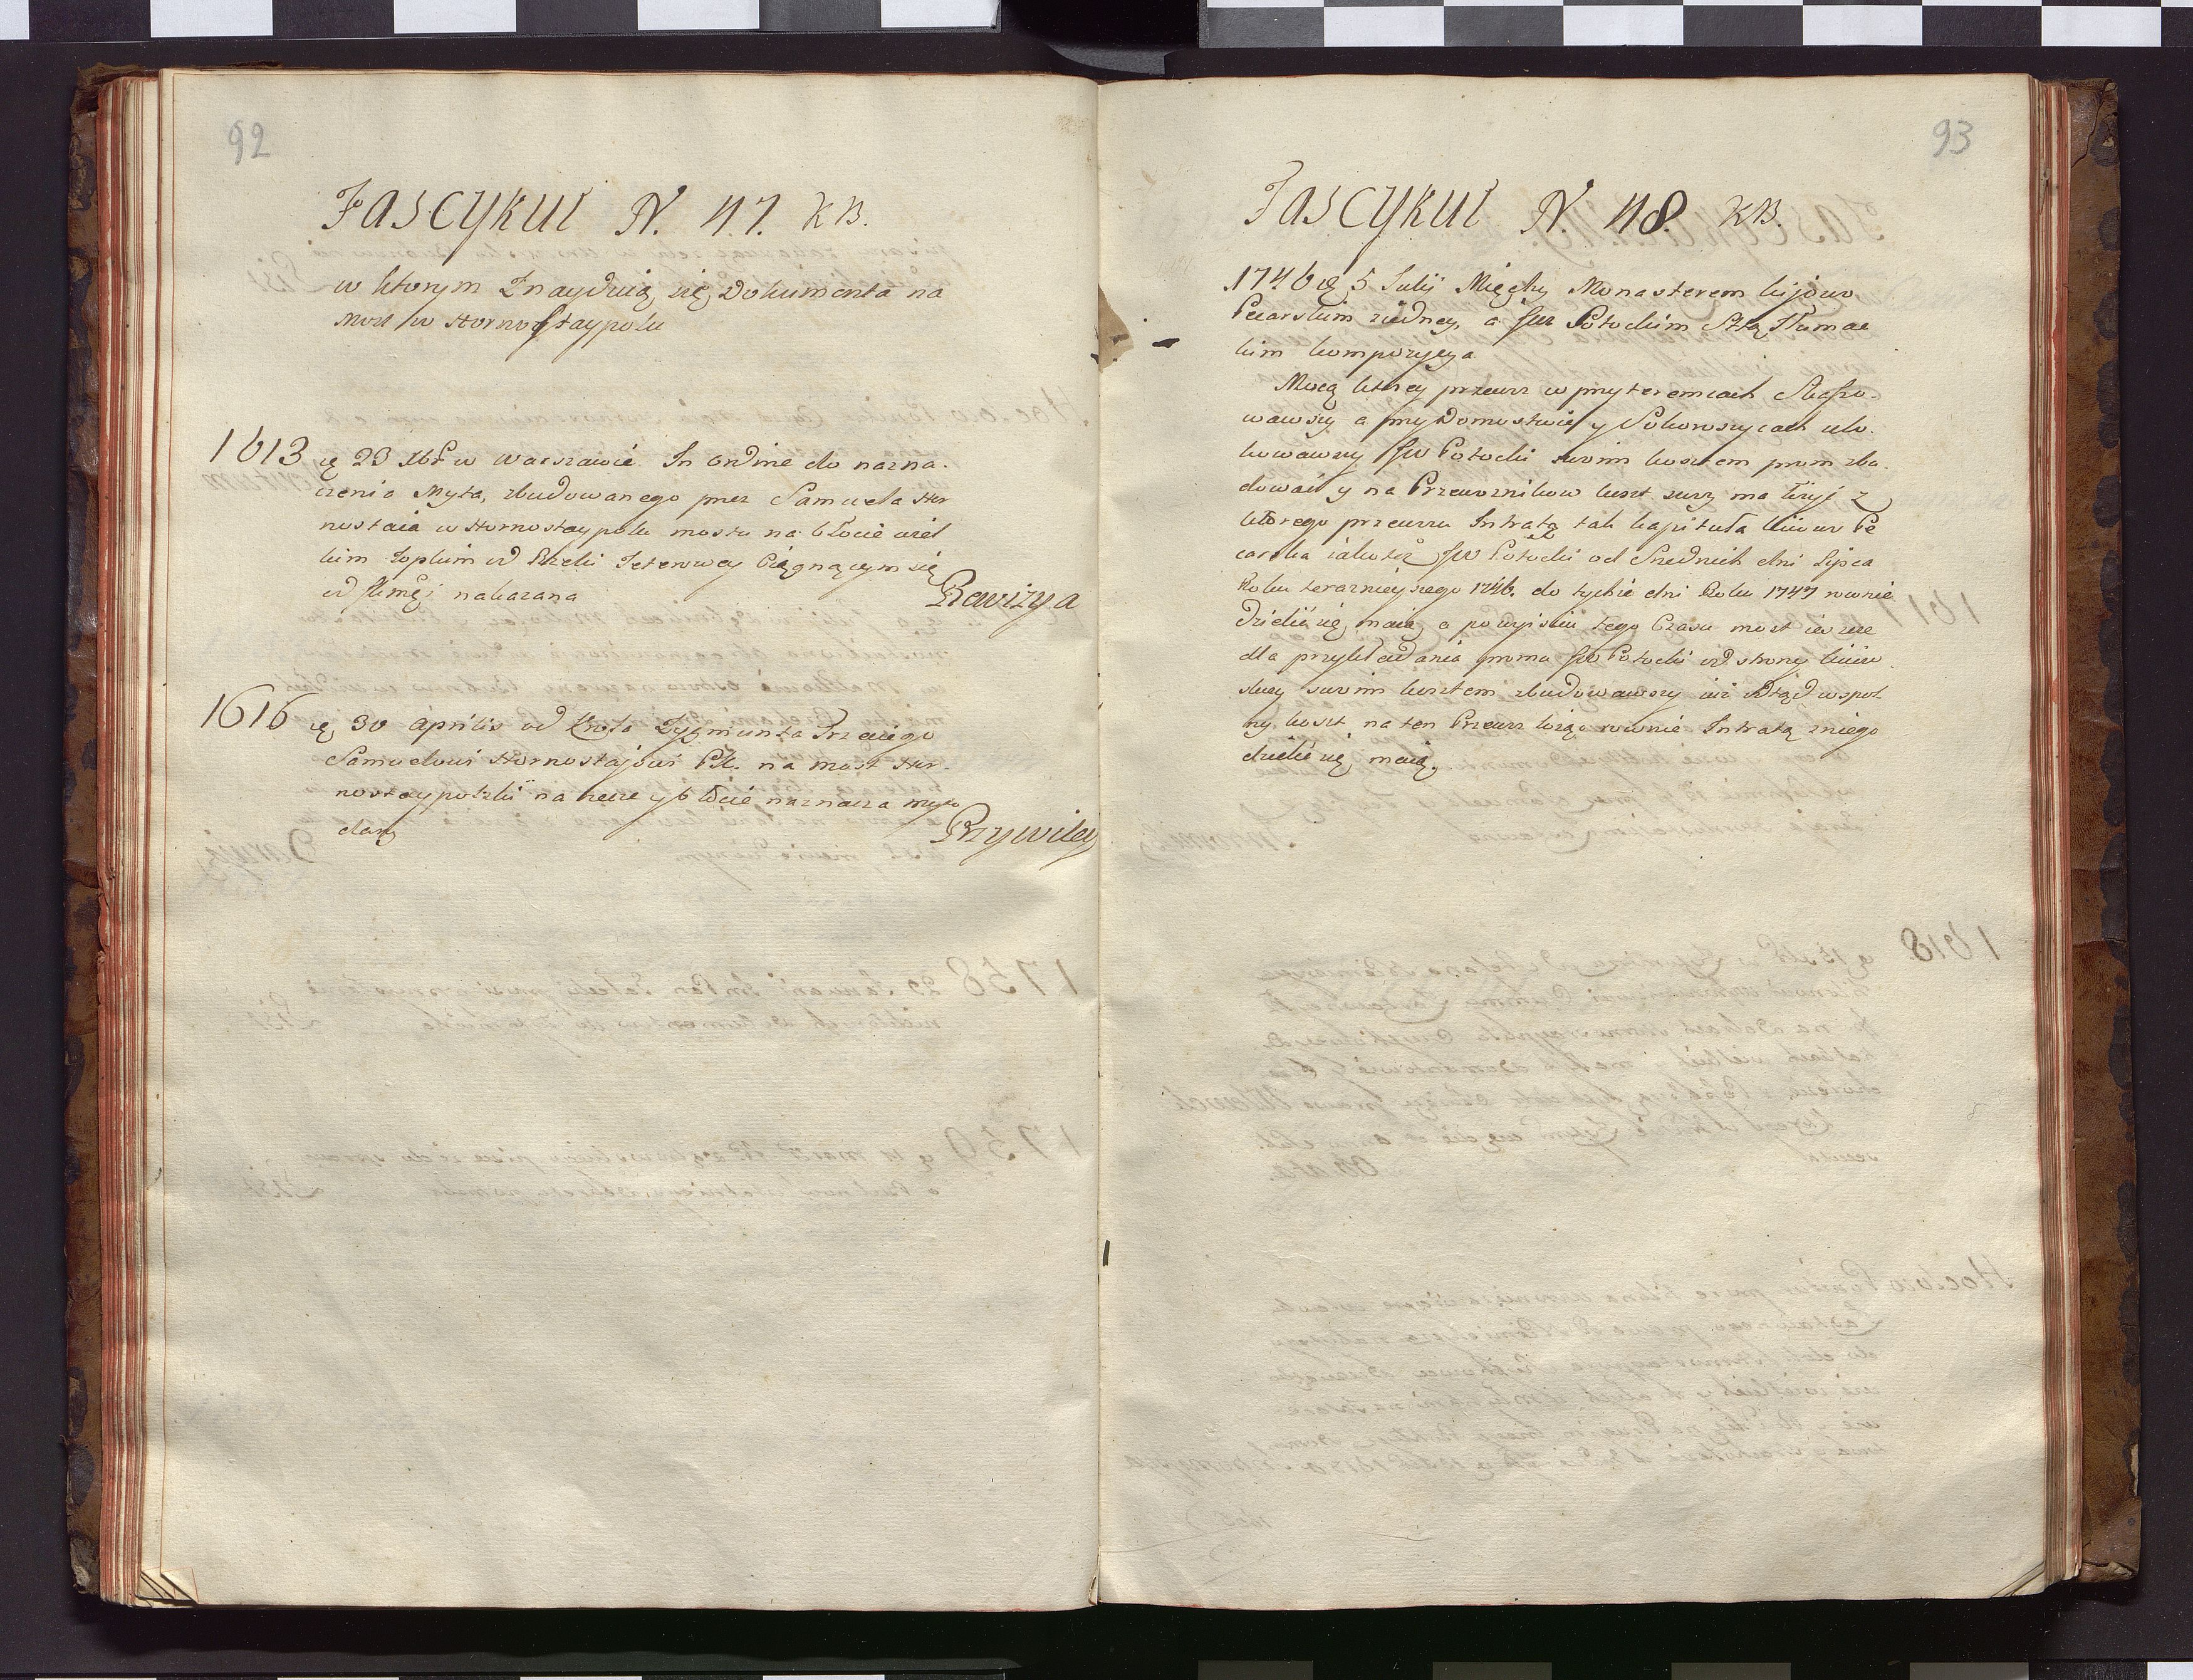 92
Fascykuł N. 47. KB.
w ktorym Znayduią się Dokumenta na
Most w Hornostaypolu
1613 ię 23 Xbr w Warszawie In ordine do nazna-
czenia Myta, zbudowanego przez Samuela Hor
nostaia w Hornostaypolu mostu na błocie wiel
kim Topkim od Rzeki Teterowey Ciągnącym się
od nakazana Rewizya
1616 ię 30 Aprilis od Krola Zygmunta Trzeciego
Samuelowi Hornostajowi na most Hor-
nostaypolski na rzece y błocie naznacza myto
dany Przywiley
93
Fascykuł N. 48. KB.
1746 ię 5 Julij Między Monasterem kijowo
Peczarskim z iedney, a JW Potockim Sttą Tłumac
kim kompozycya
Mocą ktorey przewoz w przyteremcach
wawszy a przy Domostwie y Sokoroszycach ulo-
kowawszy JW Potocki swoim kosztem prom zbu-
dować y na Przewoznikow koszt swoy ma łożyć z
ktorego przewozu Intratę tak kapituła kiiowo Pe
czarska iakoteż JW Potocki od Srednich dni Lipca
Roku teraznieyszego 1746. do tychże dni Roku 1747 rownie
dzielić się maią a po wyisciu tego Czasu most ieszcze
dla przykładania promu JW Potocki od strony kiiow-
skiey swoim kosztem zbudowawszy iuż odtąd wspol
ny koszt na ten Przewoz łożąc rownie Intratą zniego
dzielić się maią.